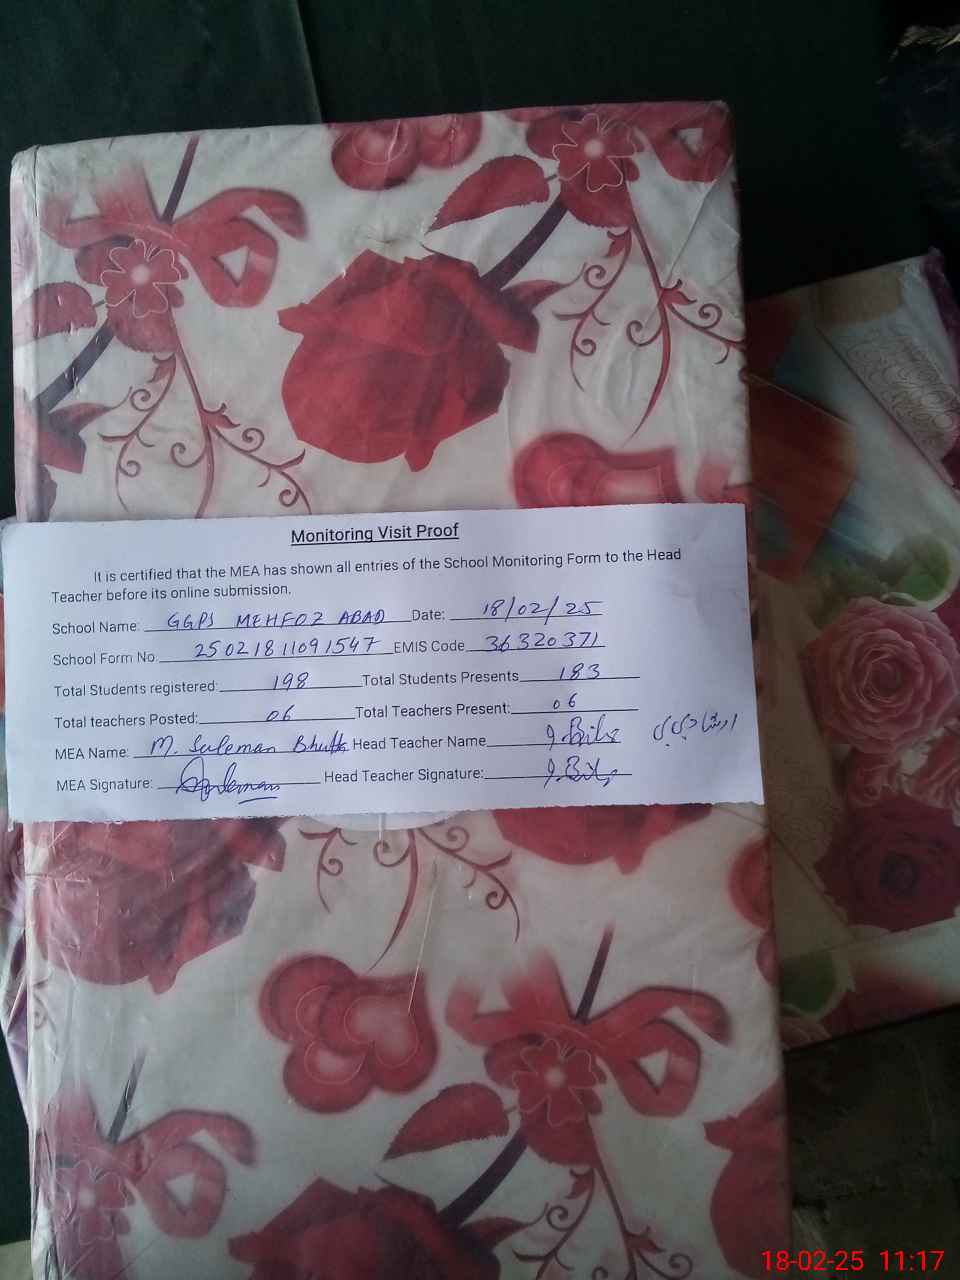 Monitoring Visit Proof
It is certified that the MEA has shown all entries of the School Monitoring Form to the Head
Teacher before its online submission.
School Name: GGPS MEHFOZ ABAD Date: 18/02/25
School Form No. 25021811091547 EMIS Code 36320371
Total Students registered: 198 Total Students Presents 183
Total teachers Posted: 06 Total Teachers Present: 06
MEA Name: M. Suleman Bhutta Head Teacher Name
MEA Signature: Suleman Head Teacher Signature:
18-02-25 11:17